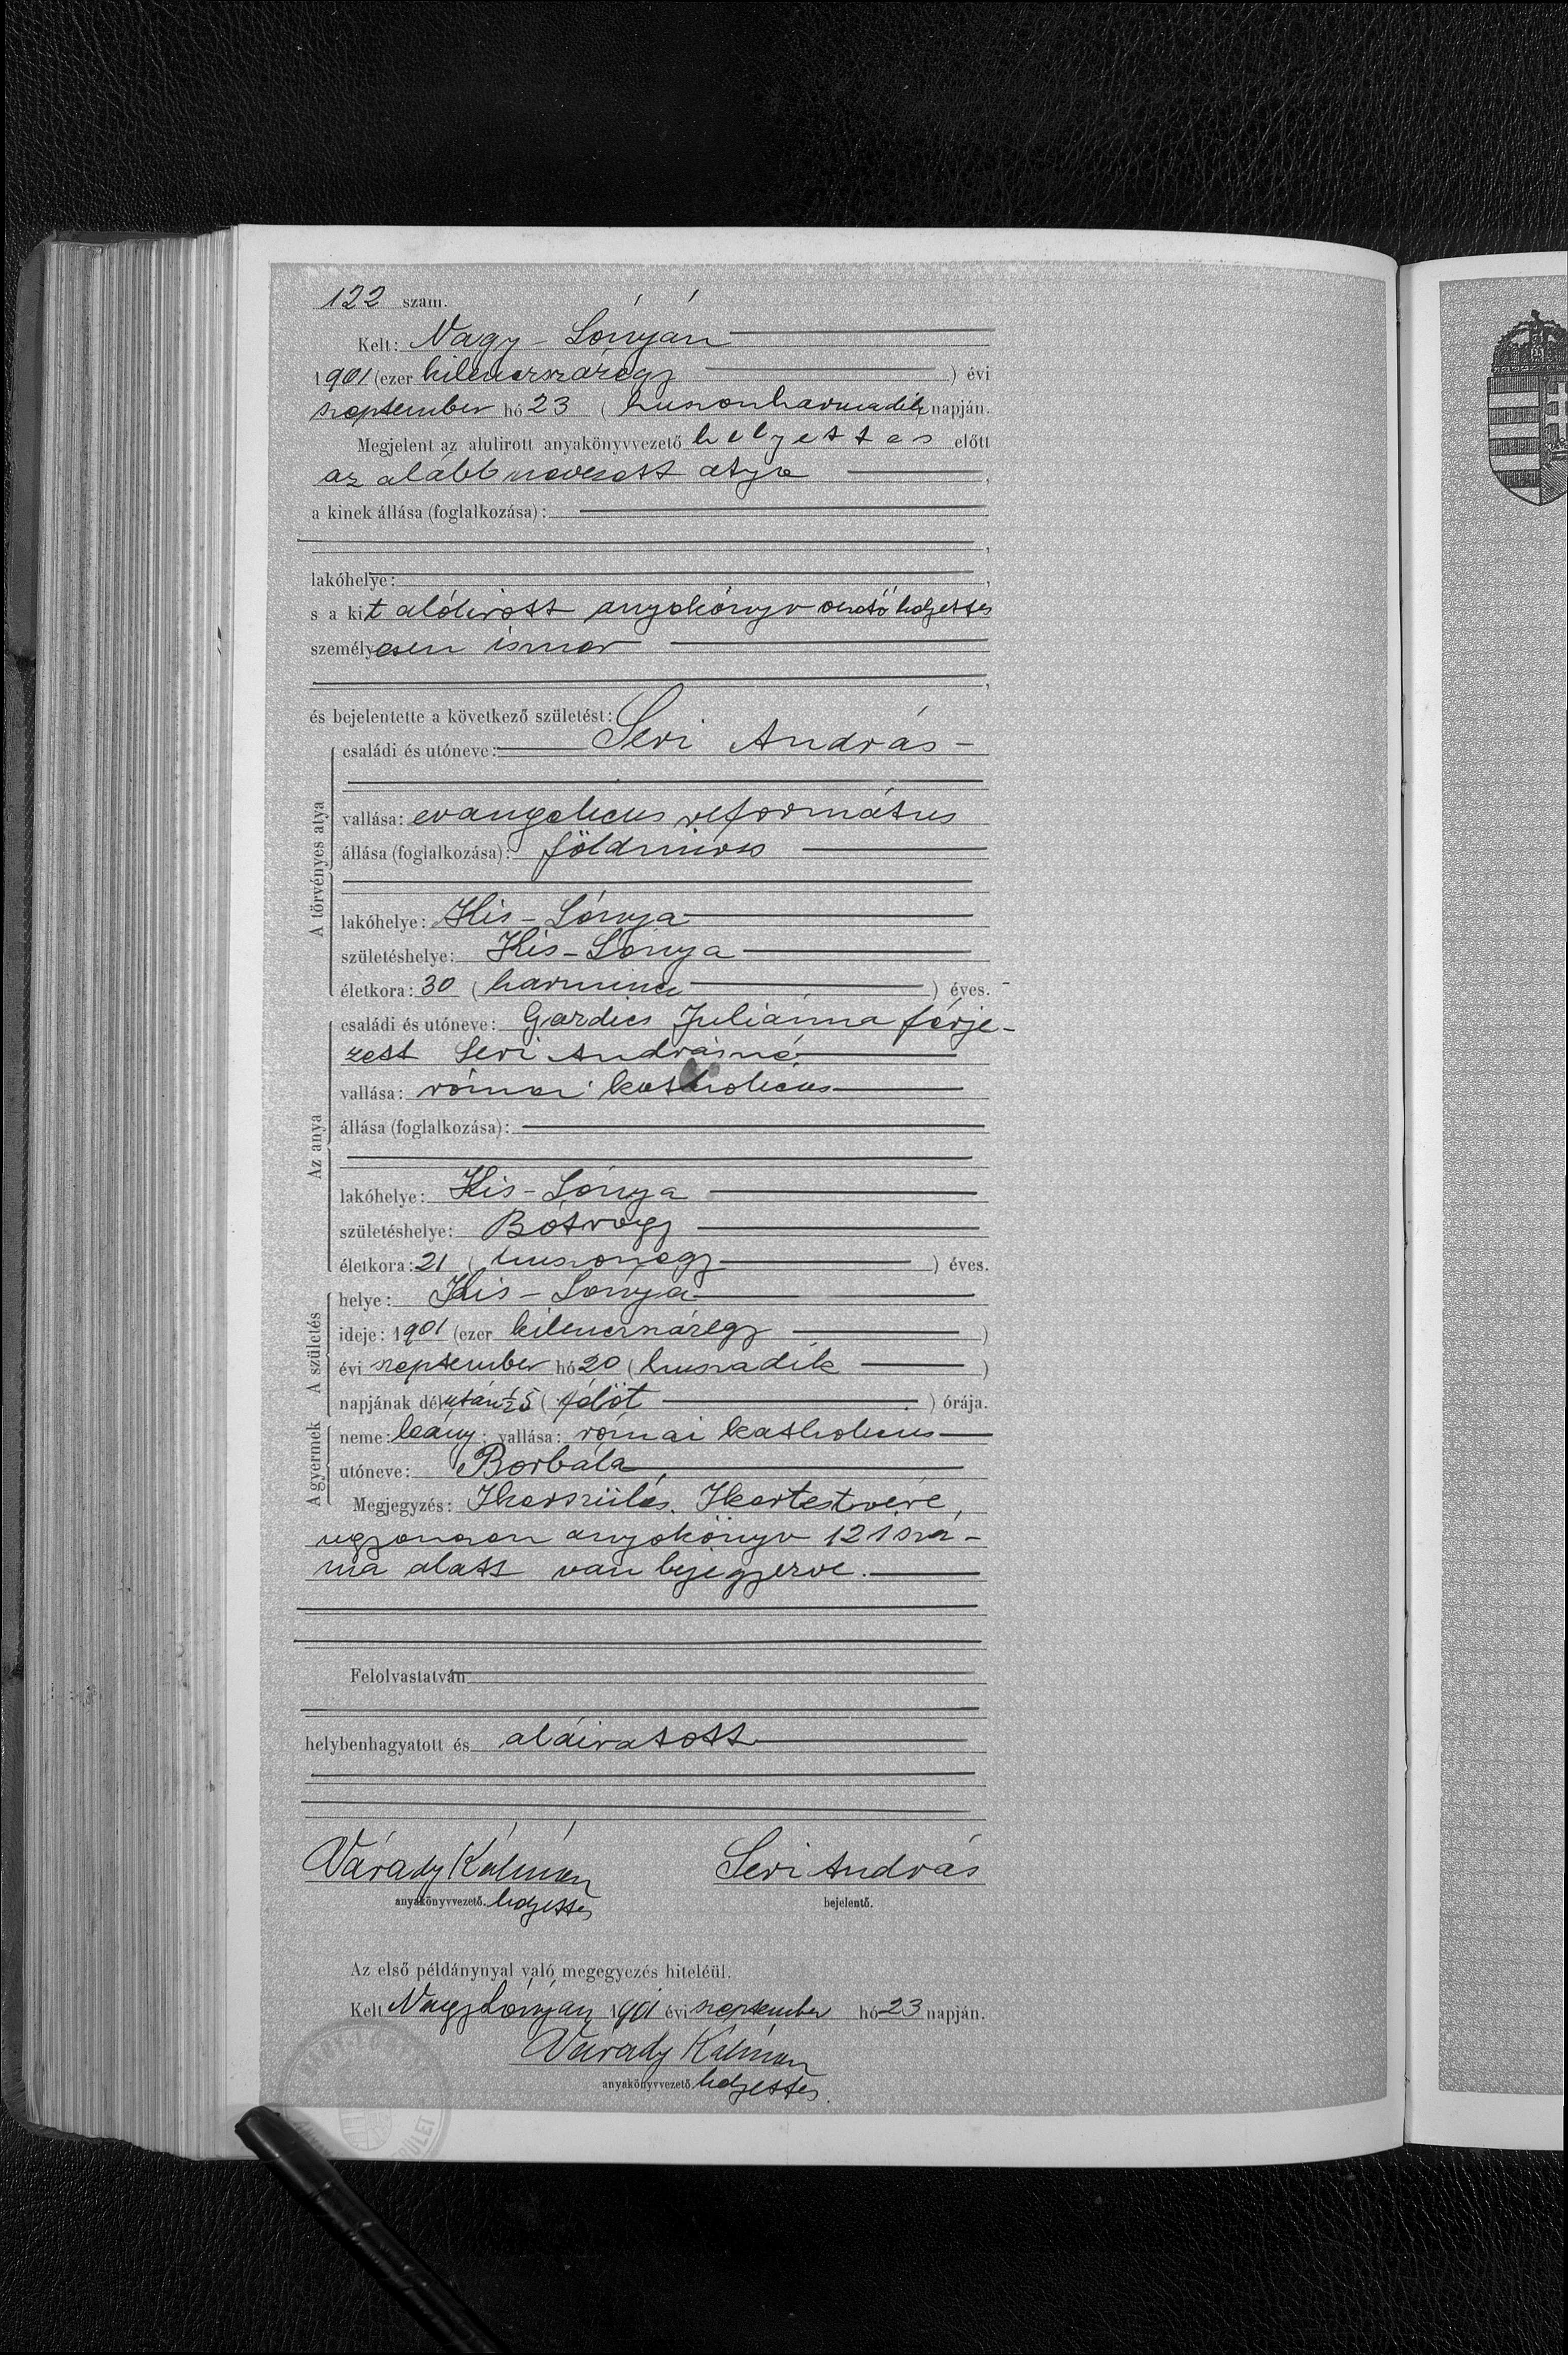 122 szám.
Kelt: Nagy-Lónyán
1901 (ezer kilenczszázegy) évi
szeptember hó 23 (huszonharmadik) napján.
Megjelent az alulirott anyakönyvvezető helyettes előtt
az alább nevezett atya,
a kinek állása (foglalkozása):
,
lakóhelye:,
s a kit alólirott anyakönyvvezető helyettes
személyesen ismer
,
és bejelentette a következő születést:
A törvényes atya
családi és utóneve: Seri András
vallása: evangelicus református
állása (foglalkozása): földmives
lakóhelye: Kis-Lónya
születéshelye: Kis-Lónya
életkora: 30 (harmincz) éves.
Az anya
családi és utóneve: Gardics Juliánna férje-
zett Seri Andrásné
vallása: római katholicus
állása (foglalkozása):
lakóhelye: Kis-Lónya
születéshelye: Bótrágy
életkora: 21 (huszonegy) éves.
A születés
helye: Kis-Lónya
ideje: 1901 (ezer kilenczszázegy)
évi szeptember hó 20 (huszadik)
napjának délután ½5 (félöt) órája.
A gyermek
neme: leány; vallása: római katholicus
utóneve: Borbála
Megjegyzés: Ikerszülés. Ikertestvére,
ugyanazon anyakönyv 121 szá-
ma alatt van bejegyezve.
Felolvastatván
helybenhagyatott és aláiratott
Várady Kálmán Seri András
anyakönyvvezető. helyettes bejelentő.
Az első példánynyal való megegyezés hiteléül.
Kelt Nagy Lónyán 1901 évi szeptember hó 23 napján.
Várady Kálmán
anyakönyvvezető helyettes.